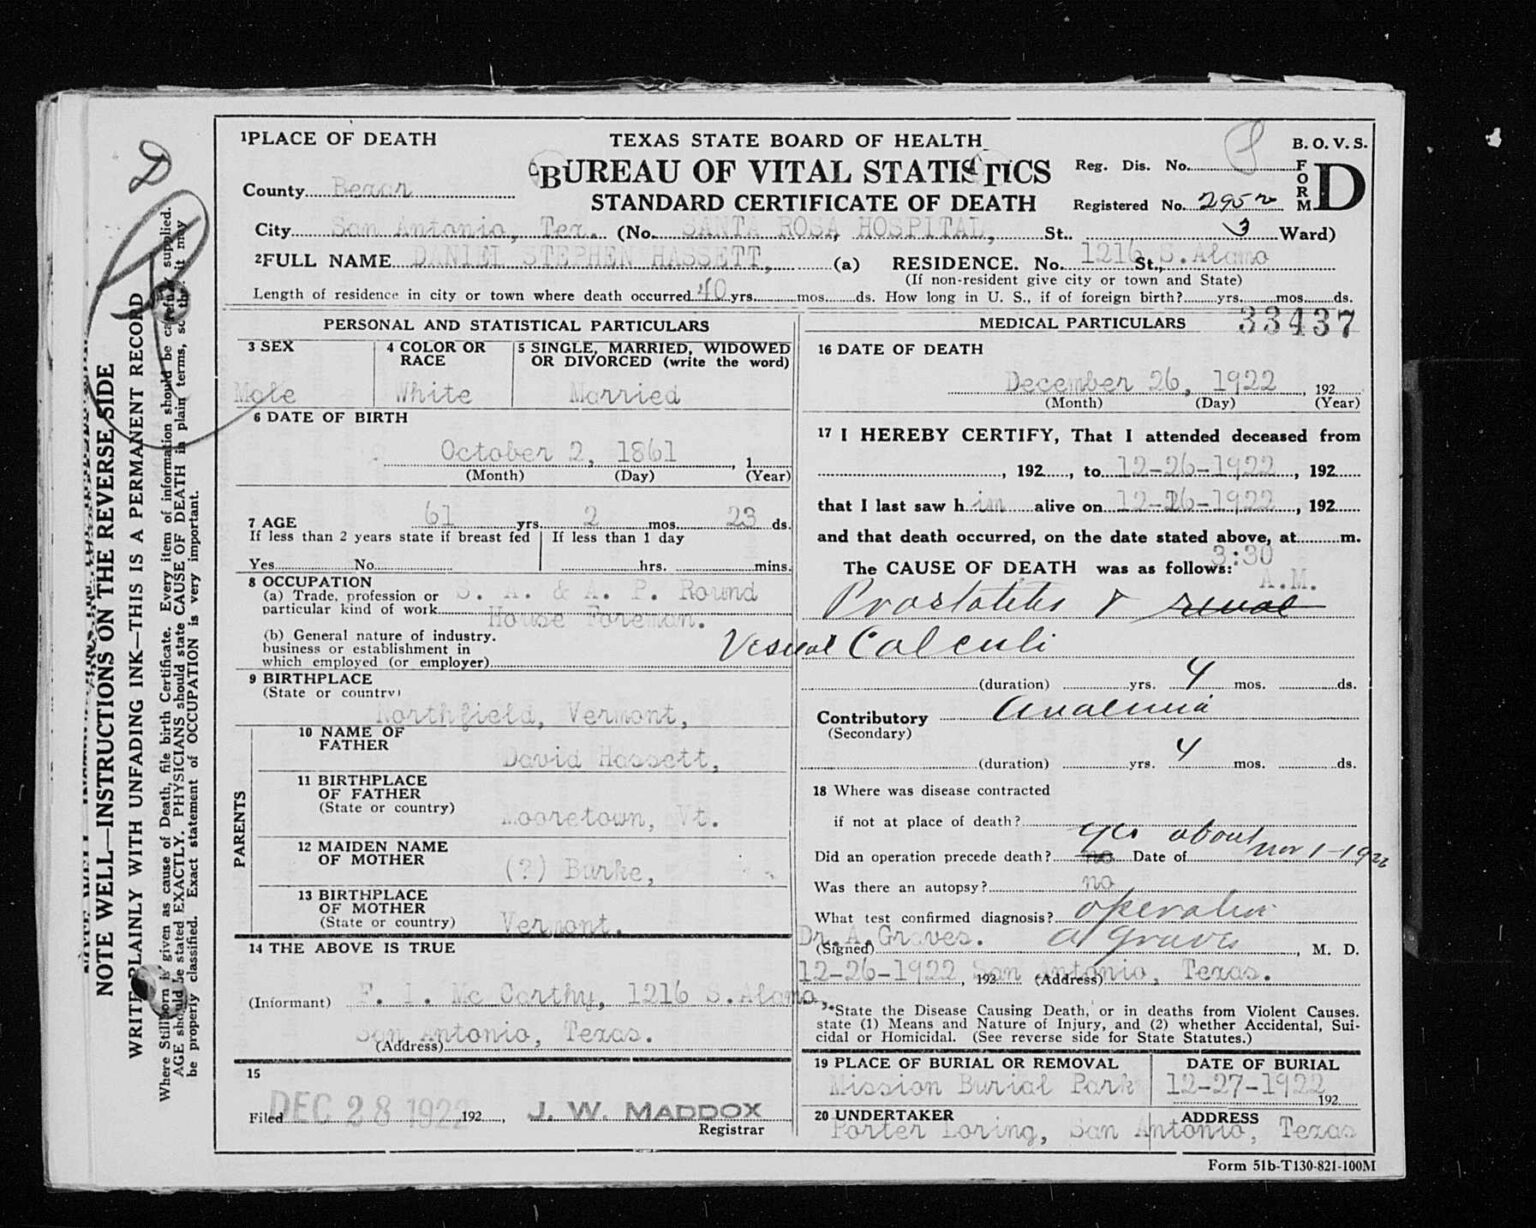 1 PLACE OF DEATH
TEXAS STATE BOARD OF HEALTH
B. O. V. S.
BUREAU OF VITAL STATISTICS
Reg. Dis. No.
FORM D
County Bexar
STANDARD CERTIFICATE OF DEATH
Registered No. 2952
City San Antonio, Tex. (No. SANTA ROSA HOSPITAL, St. 3 Ward)
2 FULL NAME DANIEL STEPHEN HASSETT, (a) RESIDENCE. No. 1216 St., S. Alamo
(If non-resident give city or town and State)
Length of residence in city or town where death occurred 40 yrs. mos. ds. How long in U. S., if of foreign birth? yrs. mos. ds.
PERSONAL AND STATISTICAL PARTICULARS
3 SEX
Male
4 COLOR OR RACE
White
5 SINGLE, MARRIED, WIDOWED
OR DIVORCED (write the word)
Married
6 DATE OF BIRTH
October 2, 1861, 1
(Month) (Day) (Year)
7 AGE 61 yrs. 2 mos. 23 ds.
If less than 2 years state if breast fed
If less than 1 day
Yes No hrs. mins.
8 OCCUPATION
(a) Trade, profession or S. A. & A. P. Round
particular kind of work House Foreman.
(b) General nature of industry.
business or establishment in
which employed (or employer)
9 BIRTHPLACE
(State or country)
Northfield, Vermont,
PARENTS
10 NAME OF
FATHER
David Hassett,
11 BIRTHPLACE
OF FATHER
(State or country)
Mooretown, Vt.
12 MAIDEN NAME
OF MOTHER
(?) Burke,
13 BIRTHPLACE
OF MOTHER
(State or country)
Vermont.
14 THE ABOVE IS TRUE
(Informant) F. I. Mc Carthy, 1216 S. Alamo,
San Antonio, Texas.
(Address)
15
Filed DEC 28 1922 192 , J. W. MADDOX
Registrar
MEDICAL PARTICULARS 33437
16 DATE OF DEATH
December 26, 1922, 192
(Month) (Day) (Year)
17 I HEREBY CERTIFY, That I attended deceased from
, 192 , to 12-26-1922, 192
that I last saw h im alive on 12-26-1922, 192
and that death occurred, on the date stated above, at m.
3:30
The CAUSE OF DEATH was as follows: A.M.
Prostatitis & renal
Vesical Calculi
(duration) yrs. 4 mos. ds.
Contributory Anaemia
(Secondary)
(duration) yrs. 4 mos. ds.
18 Where was disease contracted
if not at place of death?
Did an operation precede death? no yes Date of about Nov 1-1922
Was there an autopsy? no
What test confirmed diagnosis? operation
Dr. A. Graves. A Graves
(Signed) , M. D.
12-26-1922, 192 San Antonio, Texas.
(Address)
*State the Disease Causing Death, or in deaths from Violent Causes.
state (1) Means and Nature of Injury, and (2) whether Accidental, Sui-
cidal or Homicidal. (See reverse side for State Statutes.)
19 PLACE OF BURIAL OR REMOVAL
Mission Burial Park
DATE OF BURIAL
12-27-1922
192
20 UNDERTAKER
ADDRESS
Porter Loring, San Antonio, Texas
Form 51b-T130-821-100M
NOTE WELL—INSTRUCTIONS ON THE REVERSE SIDE
WRITE PLAINLY WITH UNFADING INK—THIS IS A PERMANENT RECORD
Where Stillborn is given as cause of Death, file birth Certificate. Every item of information should be carefully supplied.
AGE should be stated EXACTLY. PHYSICIANS should state CAUSE OF DEATH in plain terms, so that it may
be properly classified. Exact statement of OCCUPATION is very important.